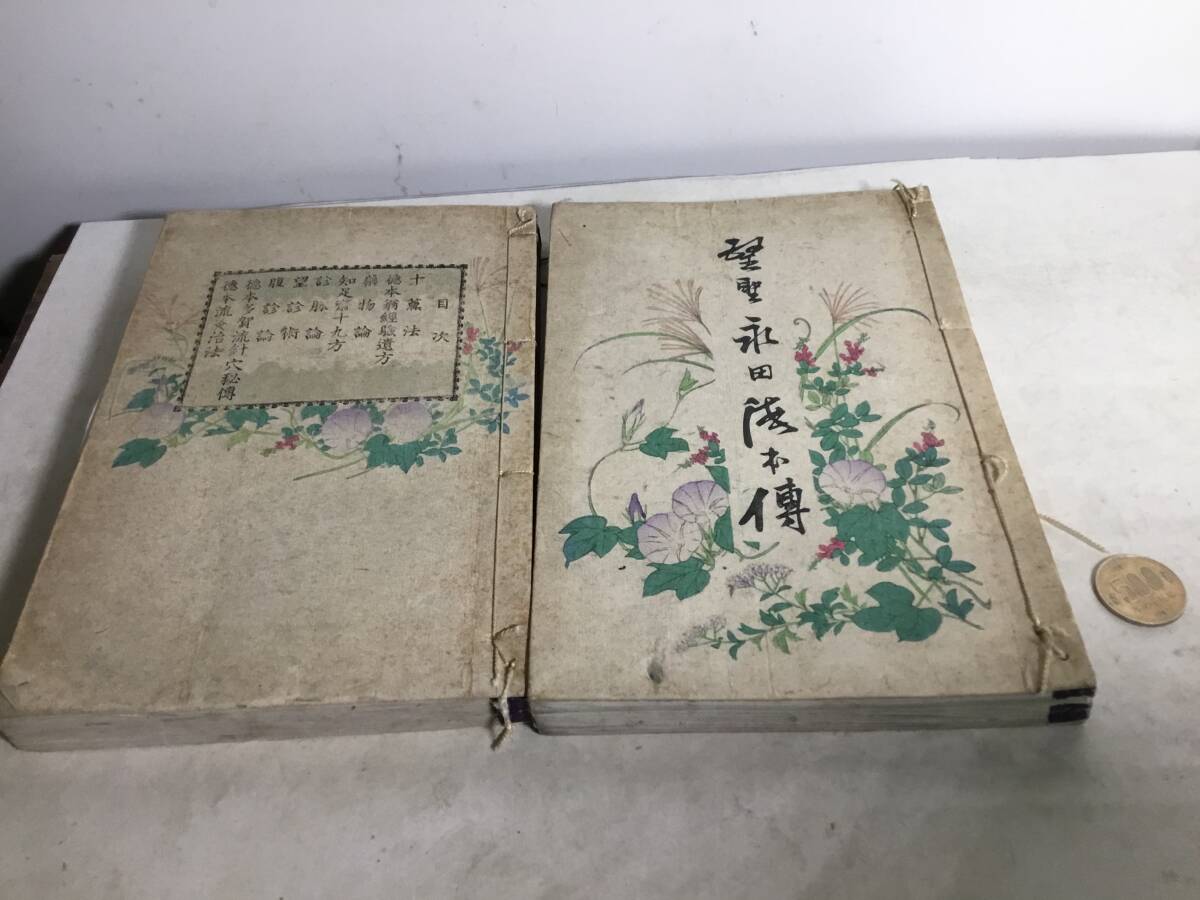 醫聖永田德本傳
目次
十 法
德本翁經驗遺方
藥物論
知足齋十九方
診脈論
望診術
腹診論
德本多賀流針穴秘傳
德本流灸治法
500